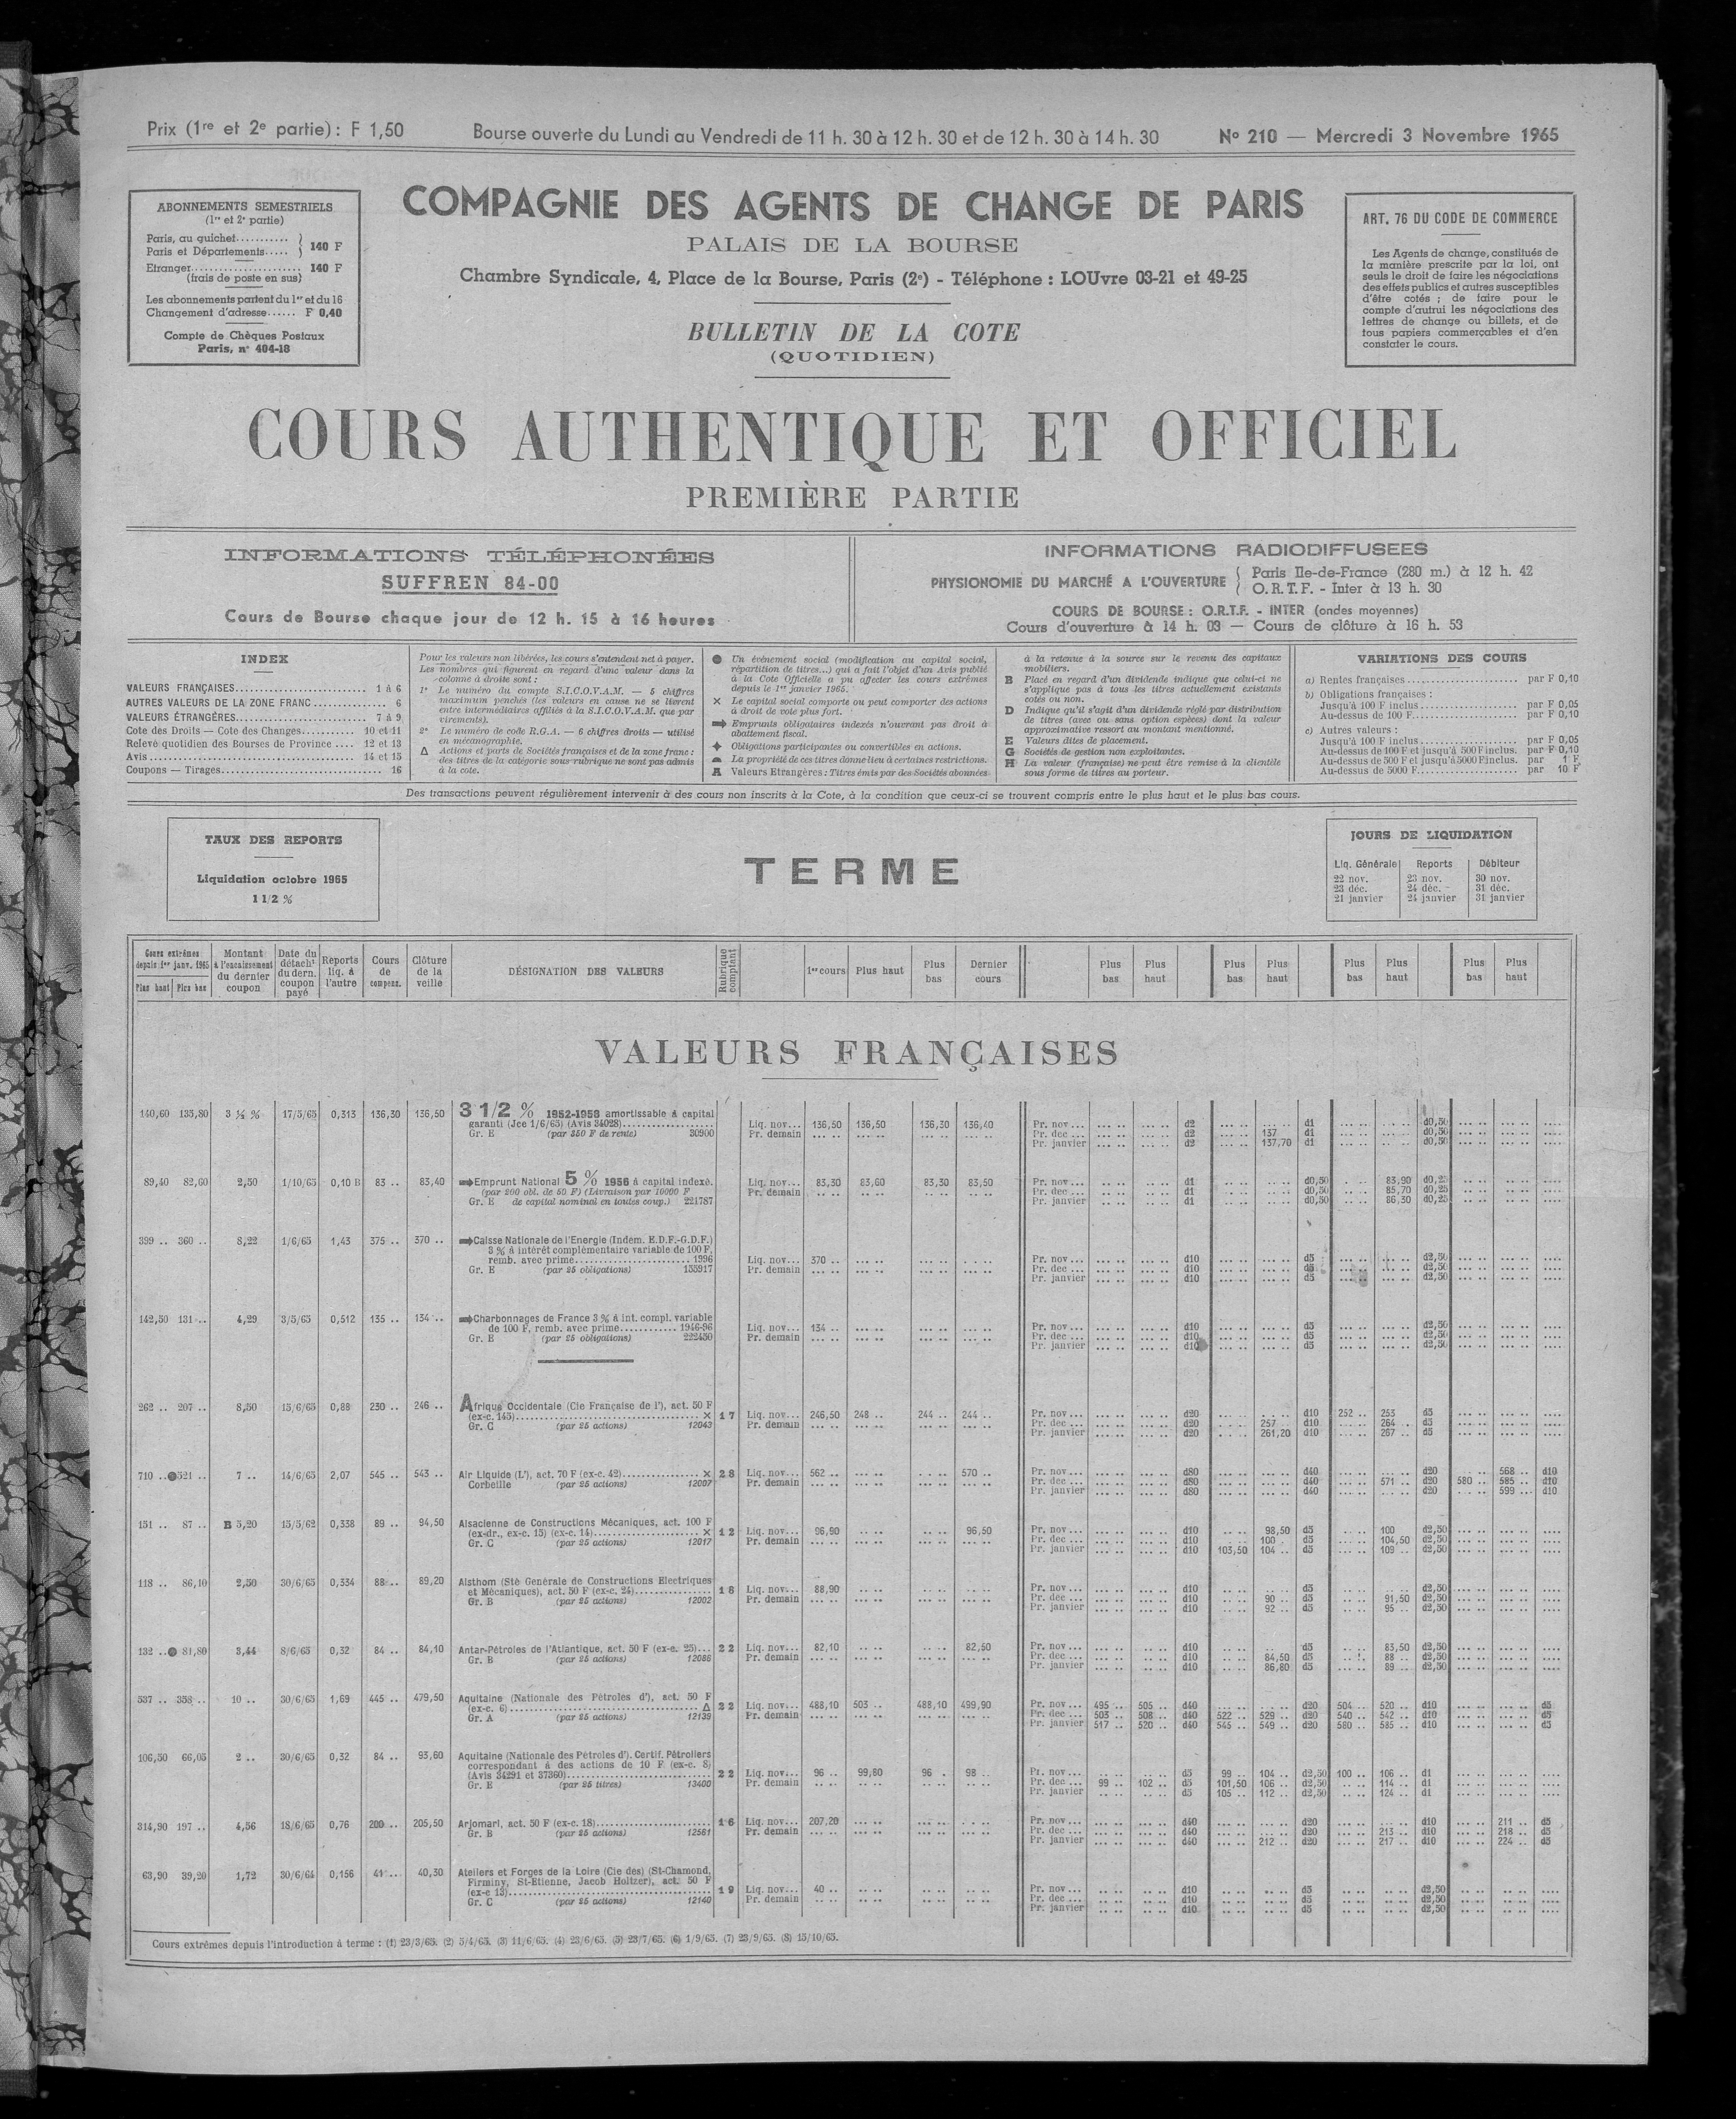 Prix (1re et 2e partie) : F 1,50
Bourse ouverte du Lundi au Vendredi de 11 h. 30 à 12 h. 30 et de 12 h. 30 à 14 h. 30
No 210 — Mercredi 3 Novembre 1965
ABONNEMENTS SEMESTRIELS
(1re et 2e partie)
Paris, au guichet........... } 140 F
Paris et Départements.....
Etranger...................... 140 F
(frais de poste en sus)
Les abonnements partent du 1er et du 16
Changement d'adresse...... F 0,40
Compte de Chèques Postaux
Paris, n° 404-18
COMPAGNIE DES AGENTS DE CHANGE DE PARIS
PALAIS DE LA BOURSE
Chambre Syndicale, 4, Place de la Bourse, Paris (2e) - Téléphone : LOUvre 03-21 et 49-25
BULLETIN DE LA COTE
(QUOTIDIEN)
ART. 76 DU CODE DE COMMERCE
Les Agents de change, constitués de
la manière prescrite par la loi, ont
seuls le droit de faire les négociations
des effets publics et autres susceptibles
d'être cotés ; de faire pour le
compte d'autrui les négociations des
lettres de change ou billets, et de
tous papiers commerçables et d'en
constater le cours.
COURS AUTHENTIQUE ET OFFICIEL
PREMIÈRE PARTIE
INFORMATIONS TÉLÉPHONÉES
SUFFREN 84-00
Cours de Bourse chaque jour de 12 h. 15 à 16 heures
INFORMATIONS RADIODIFFUSEES
PHYSIONOMIE DU MARCHÉ A L'OUVERTURE { Paris Ile-de-France (280 m.) à 12 h. 42
O.R.T.F. - Inter à 13 h. 30
COURS DE BOURSE : O.R.T.F. - INTER (ondes moyennes)
Cours d'ouverture à 14 h. 03 — Cours de clôture à 16 h. 53
INDEX
VALEURS FRANÇAISES.......................... 1 à 6
AUTRES VALEURS DE LA ZONE FRANC.............. 6
VALEURS ÉTRANGÈRES.......................... 7 à 9
Cote des Droits — Cote des Changes........... 10 et 11
Relevé quotidien des Bourses de Province .... 12 et 13
Avis......................................... 14 et 15
Coupons — Tirages............................ 16
Pour les valeurs non libérées, les cours s'entendent net à payer.
Les nombres qui figurent en regard d'une valeur dans la
colonne à droite sont :
1° Le numéro du compte S.I.C.O.V.A.M. — 5 chiffres
maximum penchés (les valeurs en cause ne se livrent
entre intermédiaires affiliés à la S.I.C.O.V.A.M. que par
virements).
2° Le numéro de code R.G.A. — 6 chiffres droits — utilisé
en mécanographie.
Δ Actions et parts de Sociétés françaises et de la zone franc :
des titres de la catégorie sous rubrique ne sont pas admis
à la cote.
● Un événement social (modification au capital social,
répartition de titres...) qui a fait l'objet d'un Avis publié
à la Cote Officielle a pu affecter les cours extrêmes
depuis le 1er janvier 1965.
✕ Le capital social comporte ou peut comporter des actions
à droit de vote plus fort.
➡ Emprunts obligataires indexés n'ouvrant pas droit à
abattement fiscal.
✦ Obligations participantes ou convertibles en actions.
La propriété de ces titres donne lieu à certaines restrictions.
A Valeurs Etrangères : Titres émis par des Sociétés abonnées
à la retenue à la source sur le revenu des capitaux
mobiliers.
B Placé en regard d'un dividende indique que celui-ci ne
s'applique pas à tous les titres actuellement existants
cotés ou non.
D Indique qu'il s'agit d'un dividende réglé par distribution
de titres (avec ou sans option espèces) dont la valeur
approximative ressort au montant mentionné.
E Valeurs dites de placement.
G Sociétés de gestion non exploitantes.
H La valeur (française) ne peut être remise à la clientèle
sous forme de titres au porteur.
VARIATIONS DES COURS
a) Rentes françaises...................... par F 0,10
b) Obligations françaises :
Jusqu'à 100 F inclus................... par F 0,05
Au-dessus de 100 F..................... par F 0,10
c) Autres valeurs :
Jusqu'à 100 F inclus................... par F 0,05
Au-dessus de 100 F et jusqu'à 500 F inclus. par F 0,10
Au-dessus de 500 F et jusqu'à 5000 F inclus. par 1 F
Au-dessus de 5000 F.................... par 10 F
Des transactions peuvent régulièrement intervenir à des cours non inscrits à la Cote, à la condition que ceux-ci se trouvent compris entre le plus haut et le plus bas cours.
TAUX DES REPORTS
Liquidation octobre 1965
1 1/2 %
TERME
JOURS DE LIQUIDATION
Liq. Générale | Reports | Débiteur
22 nov. 23 nov. 30 nov.
23 déc. 24 déc. 31 déc.
21 janvier 24 janvier 31 janvier
Cours extrêmes depuis 1er janv. 1965 Plus haut | Plus bas
Montant à l'encaissement du dernier coupon
Date du détacht du dern. coupon payé
Reports liq. à l'autre
Cours de compens.
Clôture de la veille
DÉSIGNATION DES VALEURS
Rubrique comptant
1er cours
Plus haut
Plus bas
Dernier cours
Plus bas
Plus haut
Plus bas
Plus haut
Plus bas
Plus haut
Plus bas
Plus haut
VALEURS FRANÇAISES
140,60 135,80 3 ½ % 17/5/65 0,313 136,30 136,50 3 1/2 % 1952-1958 amortissable à capital
garanti (Jce 1/6/65) (Avis 34028)..................
Gr. E (par 350 F de rente) 30900
Liq. nov... 136,50 136,50 136,30 136,40 Pr. nov ... d2 d1 d0,50
Pr. demain Pr. dec ... d2 137 d1 d0,50
Pr. janvier d2 137,70 d1 d0,50
89,40 82,60 2,50 1/10/65 0,10 B 83 .. 83,40 ➡Emprunt National 5 % 1956 à capital indexé.
(par 200 obl. de 50 F) (Livraison par 10000 F
Gr. E de capital nominal en toutes coup.) 221787
Liq. nov... 83,30 83,60 83,30 83,50 Pr. nov ... d1 d0,50 83,90 d0,25
Pr. demain Pr. dec ... d1 d0,50 85,70 d0,25
Pr. janvier d1 d0,50 86,30 d0,25
399 .. 360 .. 8,22 1/6/65 1,43 375 .. 370 .. ➡Caisse Nationale de l'Energie (Indem. E.D.F.-G.D.F.)
3 % à intérêt complémentaire variable de 100 F,
remb. avec prime......................... 1996
Gr. E (par 25 obligations) 155917
Liq. nov... 370 .. Pr. nov ... d10 d5 d2,50
Pr. demain Pr. dec ... d10 d5 d2,50
Pr. janvier d10 d5 d2,50
142,50 131 .. 4,29 3/5/65 0,512 135 .. 134 .. ➡Charbonnages de France 3 % à int. compl. variable
de 100 F, remb. avec prime............ 1946-96
Gr. E (par 25 obligations) 222450
Liq. nov... 134 .. Pr. nov ... d10 d5 d2,50
Pr. demain Pr. dec ... d10 d5 d2,50
Pr. janvier d10 d5 d2,50
262 .. 207 .. 8,50 15/6/65 0,88 230 .. 246 .. Afrique Occidentale (Cie Française de l'), act. 50 F
(ex-c. 145)............................ ✕ 1 7
Gr. C (par 25 actions) 12043
Liq. nov... 246,50 248 .. 244 .. 244 .. Pr. nov ... d20 d10 252 .. 253 d5
Pr. demain Pr. dec ... d20 257 d10 264 .. d5
Pr. janvier d20 261,20 d10 267 .. d5
710 ..●521 .. 7 .. 14/6/65 2,07 545 .. 543 .. Air Liquide (L'), act. 70 F (ex-c. 42)............... ✕ 2 8
Corbeille (par 25 actions) 12007
Liq. nov... 562 .. 570 .. Pr. nov ... d80 d40 d20 568 .. d10
Pr. demain Pr. dec ... d80 d40 571 .. d20 580 .. 585 .. d10
Pr. janvier d80 d40 d20 599 ... d10
151 .. 87 .. B 5,20 15/5/62 0,338 89 .. 94,50 Alsacienne de Constructions Mécaniques, act. 100 F
(ex-dr., ex-c. 13) (ex-c. 14)........................ ✕ 1 2
Gr. C (par 25 actions) 12017
Liq. nov... 96,90 96,50 Pr. nov ... d10 98,50 d5 100 d2,50
Pr. demain Pr. dec ... d10 100 d5 104,50 d2,50
Pr. janvier d10 103,50 104 .. d5 109 .. d2,50
118 .. 86,10 2,50 30/6/65 0,334 88 .. 89,20 Alsthom (Sté Générale de Constructions Electriques
et Mécaniques), act. 50 F (ex-c. 24)............... 1 8
Gr. B (par 25 actions) 12002
Liq. nov... 88,90 Pr. nov ... d10 d5 d2,50
Pr. demain Pr. dec ... d10 90 .. d5 91,50 d2,50
Pr. janvier d10 92 .. d5 95 .. d2,50
132 ..● 81,80 3,44 8/6/65 0,32 84 .. 84,10 Antar-Pétroles de l'Atlantique, act. 50 F (ex-c. 25)... 2 2
Gr. B (par 25 actions) 12086
Liq. nov... 82,10 82,50 Pr. nov ... d10 d5 83,50 d2,50
Pr. demain Pr. dec ... d10 84,50 d5 88 .. d2,50
Pr. janvier d10 86,80 d5 89 .. d2,50
537 .. 358 .. 10 .. 30/6/65 1,69 445 .. 479,50 Aquitaine (Nationale des Pétroles d'), act. 50 F
(ex-c. 6)........................................ Δ 2 2
Gr. A (par 25 actions) 12139
Liq. nov... 488,10 503 .. 488,10 499,90 Pr. nov ... 495 .. 505 .. d40 d20 504 .. 520 .. d10 d5
Pr. demain Pr. dec ... 503 .. 508 .. d40 522 .. 529 .. d20 540 .. 542 .. d10 d5
Pr. janvier 517 .. 520 .. d40 545 .. 549 .. d20 580 .. 585 .. d10 d5
106,50 66,05 2 .. 30/6/65 0,32 84 .. 93,60 Aquitaine (Nationale des Pétroles d'). Certif. Pétroliers
correspondant à des actions de 10 F (ex-c. 8)
(Avis 34291 et 37360)................................ 2 2
Gr. E (par 25 titres) 13400
Liq. nov... 96 .. 99,80 96 . 98 .. Pr. nov ... d5 99 .. 104 .. d2,50 100 .. 106 .. d1
Pr. demain Pr. dec ... 99 .. 102 .. d5 101,50 106 .. d2,50 114 .. d1
Pr. janvier d5 105 .. 112 .. d2,50 124 .. d1
314,90 197 .. 4,56 18/6/65 0,76 200 .. 205,50 Arjomari, act. 50 F (ex-c. 18)........................ 1 6
Gr. B (par 25 actions) 12561
Liq. nov... 207,20 Pr. nov ... d40 d20 d10 211 .. d5
Pr. demain Pr. dec ... d40 d20 213 .. d10 218 .. d5
Pr. janvier d40 212 .. d20 217 .. d10 224 .. d5
63,90 39,20 1,72 30/6/64 0,156 41 .. 40,30 Ateliers et Forges de la Loire (Cie des) (St-Chamond,
Firminy, St-Etienne, Jacob Holtzer), act. 50 F
(ex-c 13)............................................ 1 9
Gr. C (par 25 actions) 12140
Liq. nov... 40 .. Pr. nov ... d10 d5 d2,50
Pr. demain Pr. dec ... d10 d5 d2,50
Pr. janvier d10 d5 d2,50
Cours extrêmes depuis l'introduction à terme : (1) 23/3/65. (2) 5/4/65. (3) 11/6/65. (4) 23/6/65. (5) 23/7/65. (6) 1/9/65. (7) 23/9/65. (8) 15/10/65.